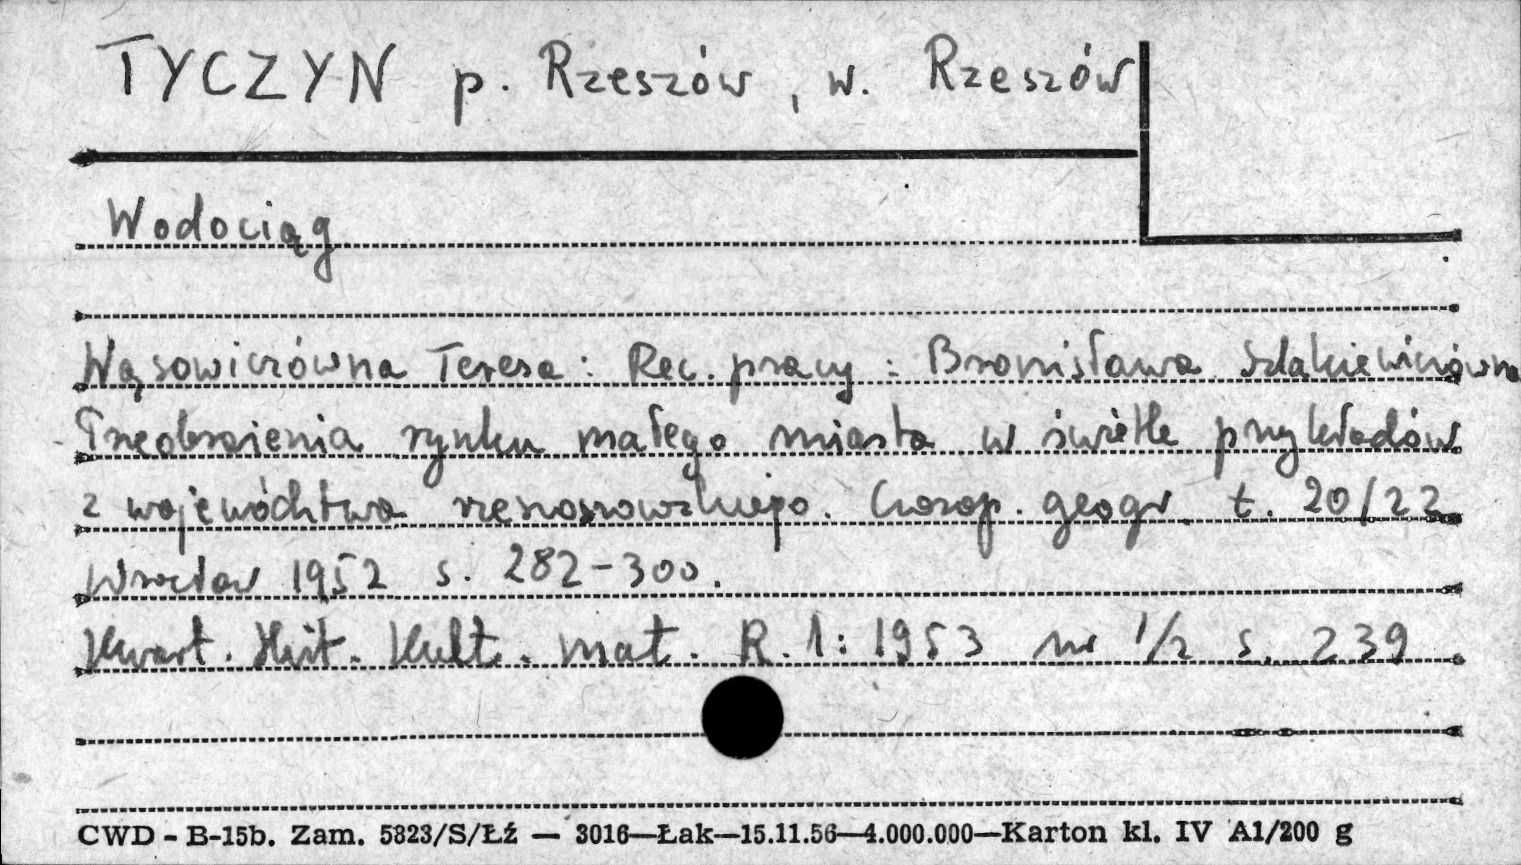 TYCZYN p. Rzeszów, w. Rzeszów
Wodociąg
Wąsowiczówna Teresa: Rec. pracy: Bronisława Szląkiewiczówna
Przeobrażenia rynku małego miasta w świetle przykładów
z województwa rzeszowskiego. Czasop. geogr. t. 20/22
Wrocław 1952 s. 282-300.
Kwart. Hist. Kult. mat. R. 1: 1953 nr 1/2 s. 239
CWD - B-15b. Zam. 5823/S/Łź — 3016—Łak—15.11.56—4.000.000—Karton kl. IV A1/200 g